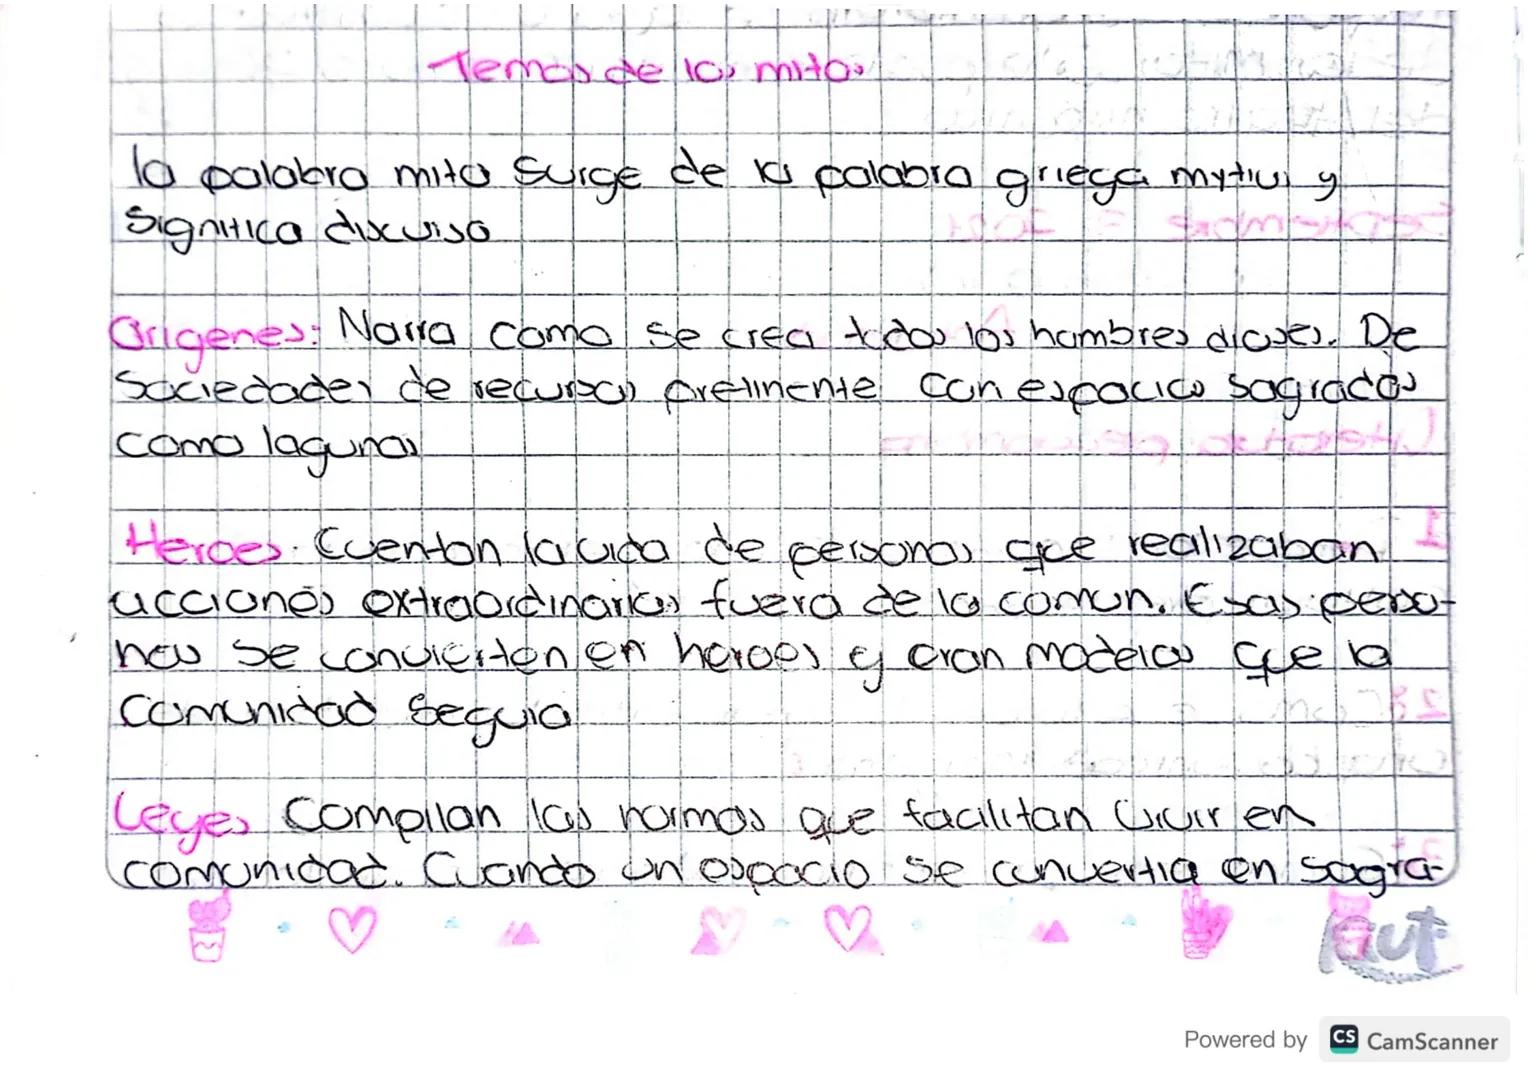 Temas de los mitos
la palabra mito surge de la palabra griega mythus y
significa discurso
Origenes: Narra como se crea todos los hombres dioses. De
sociedades de recursos con espacios sagrados
como lagunas
Heroes: Cuentan la vida de personas que realizaban
acciones extraordinarias fuera de lo comun. Esas perso-
nas se convierten en heroes y eran modelos que la
comunidad seguia
Leyes Compilan las normas que facilitan vivir en
comunidad. Cuando un espacio se convertia en sagra-
Powered by CS CamScanner